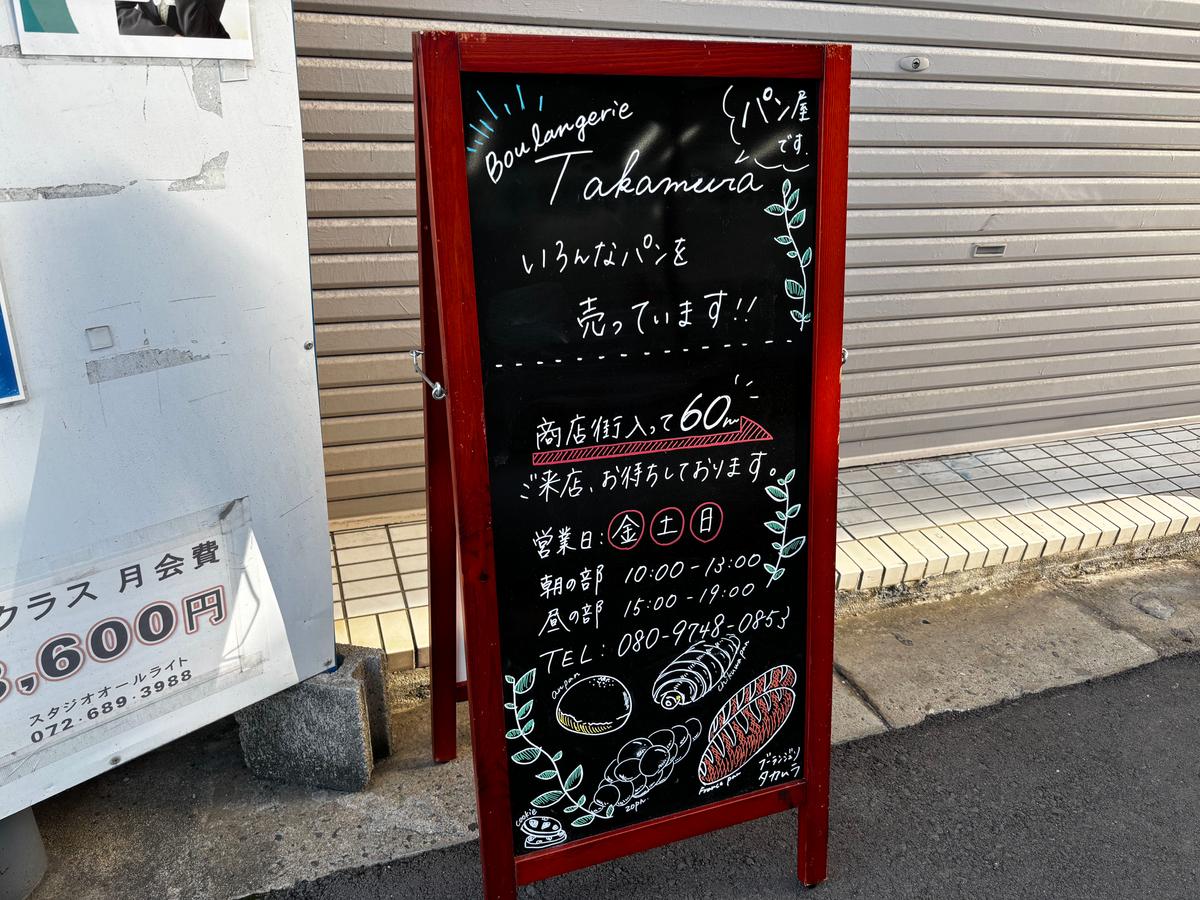 Boulangerie
Takamura
パン屋
です
いろんなパンを
売っています!!
商店街入って60m
ご来店、お待ちしております。
営業日:金土日
朝の部 10:00-13:00
昼の部 15:00-19:00
TEL:080-9748-0853
anpan
France pan
cookie
ブーランジェリ
タカムラ
クラス 月会費
,600円
スタジオオールライト
072.689.3988